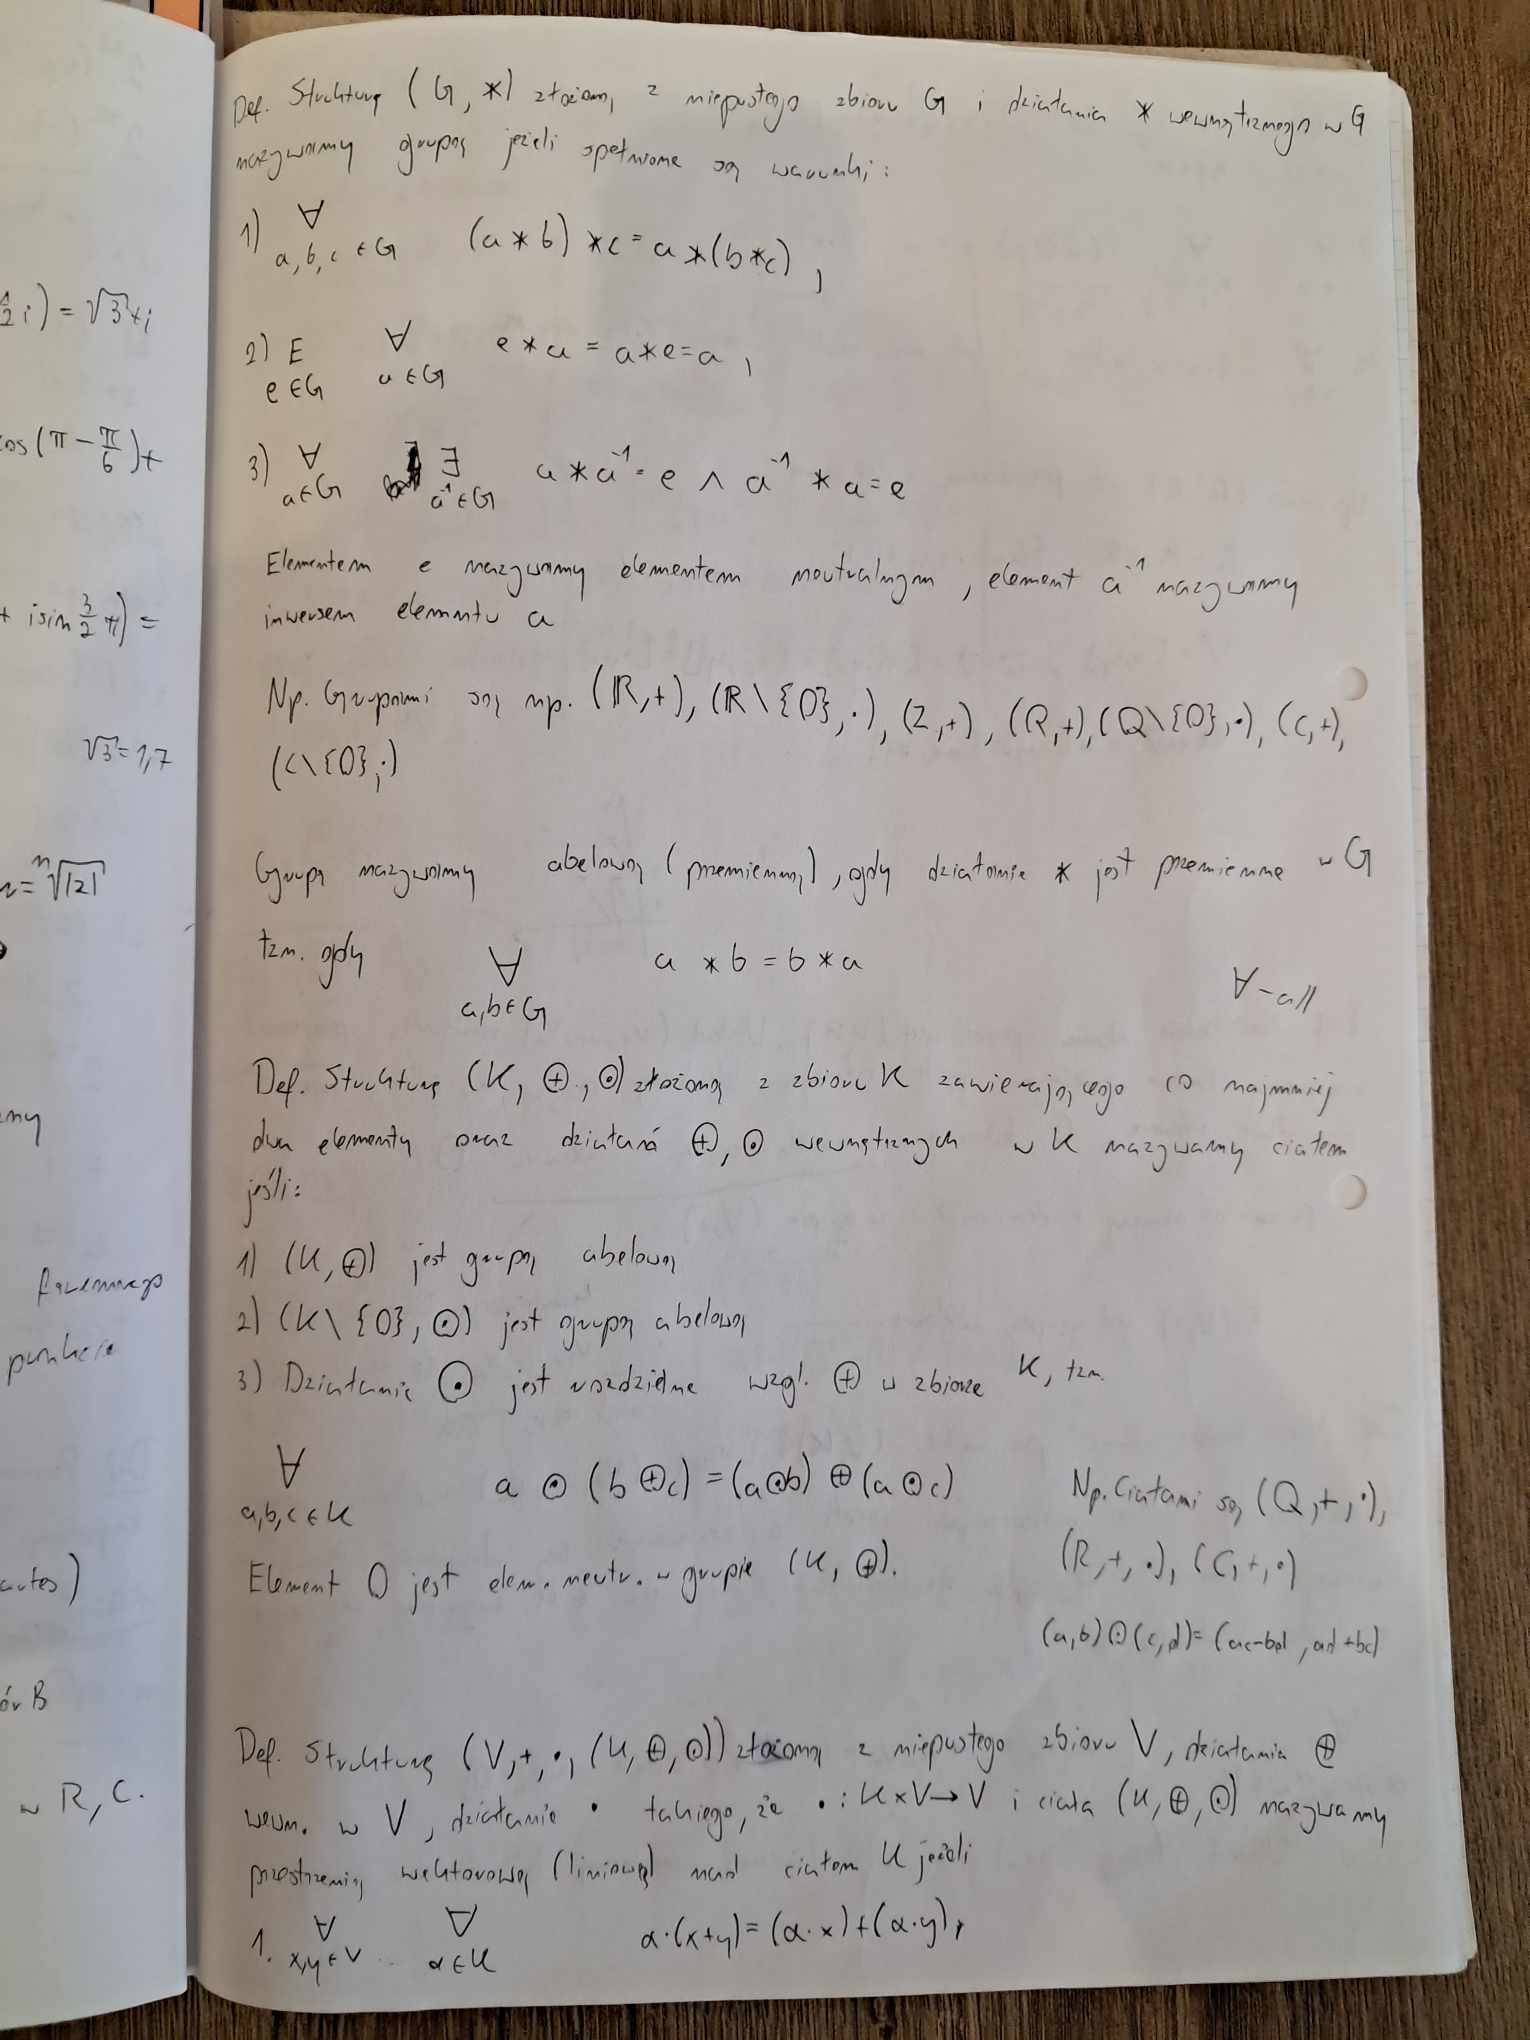 ½i) = √3+i
cos(π − π/6)+
+ isin 3/2 π) =
√3=1,7
n=ⁿ√|z|
punkcie
ór B
w R, C.
Def. Strukturę (G, *) złożoną z niepustego zbioru G i działania * wewnętrznego w G
nazywamy grupą jeżeli spełnione są warunki:
1) ∀ (a * b) * c = a * (b * c) ,
a, b, c ∈ G
2) E ∀ e * a = a * e = a ,
e ∈ G a ∈ G
3) ∀ ∃ a * a⁻¹ = e ∧ a⁻¹ * a = e
a ∈ G a⁻¹ ∈ G
Elementem e nazywamy elementem neutralnym, element a⁻¹ nazywamy
inwersem elemntu a
Np. Grupami są np. (ℝ,+), (ℝ\{0},·), (Z,+), (Q,+),(Q\{0},·), (C,+),
(C\{0},·)
Grupą nazywamy abelową (przemienną), gdy działanie * jest przemienne w G
tzn. gdy ∀ a * b = b * a
a,b ∈ G
∀-all
Def. Strukturę (K, ⊕, ⊙) złożoną z zbioru K zawierającego co najmniej
dwa elementy oraz działań ⊕, ⊙ wewnętrznych w K nazywamy ciałem
jeśli:
1) (K, ⊕) jest grupą abelową
2) (K\{0}, ⊙) jest grupą abelową
3) Działanie ⊙ jest rozdzielne wzgl. ⊕ w zbiorze K, tzn.
∀ a ⊙ (b ⊕ c) = (a ⊙ b) ⊕ (a ⊙ c)
a,b,c ∈ K
Np. Ciałami są (Q,+,·),
(R,+,·), (C,+,·)
Element 0 jest elem. neutr. w grupie (K, ⊕).
(a,b) ⊙ (c,d) = (ac−bd, ad+bc)
Def. Strukturę (V,+,·,(K,⊕,⊙)) złożoną z niepustego zbioru V, działania ⊕
wewn. w V, działanie · takiego, że · : K×V→V i ciała (K,⊕,⊙) nazywamy
przestrzenią wektorową (liniową) nad ciałem K jeżeli
1. ∀ ∀ α·(x+y) = (α·x)+(α·y),
x,y ∈ V α ∈ K